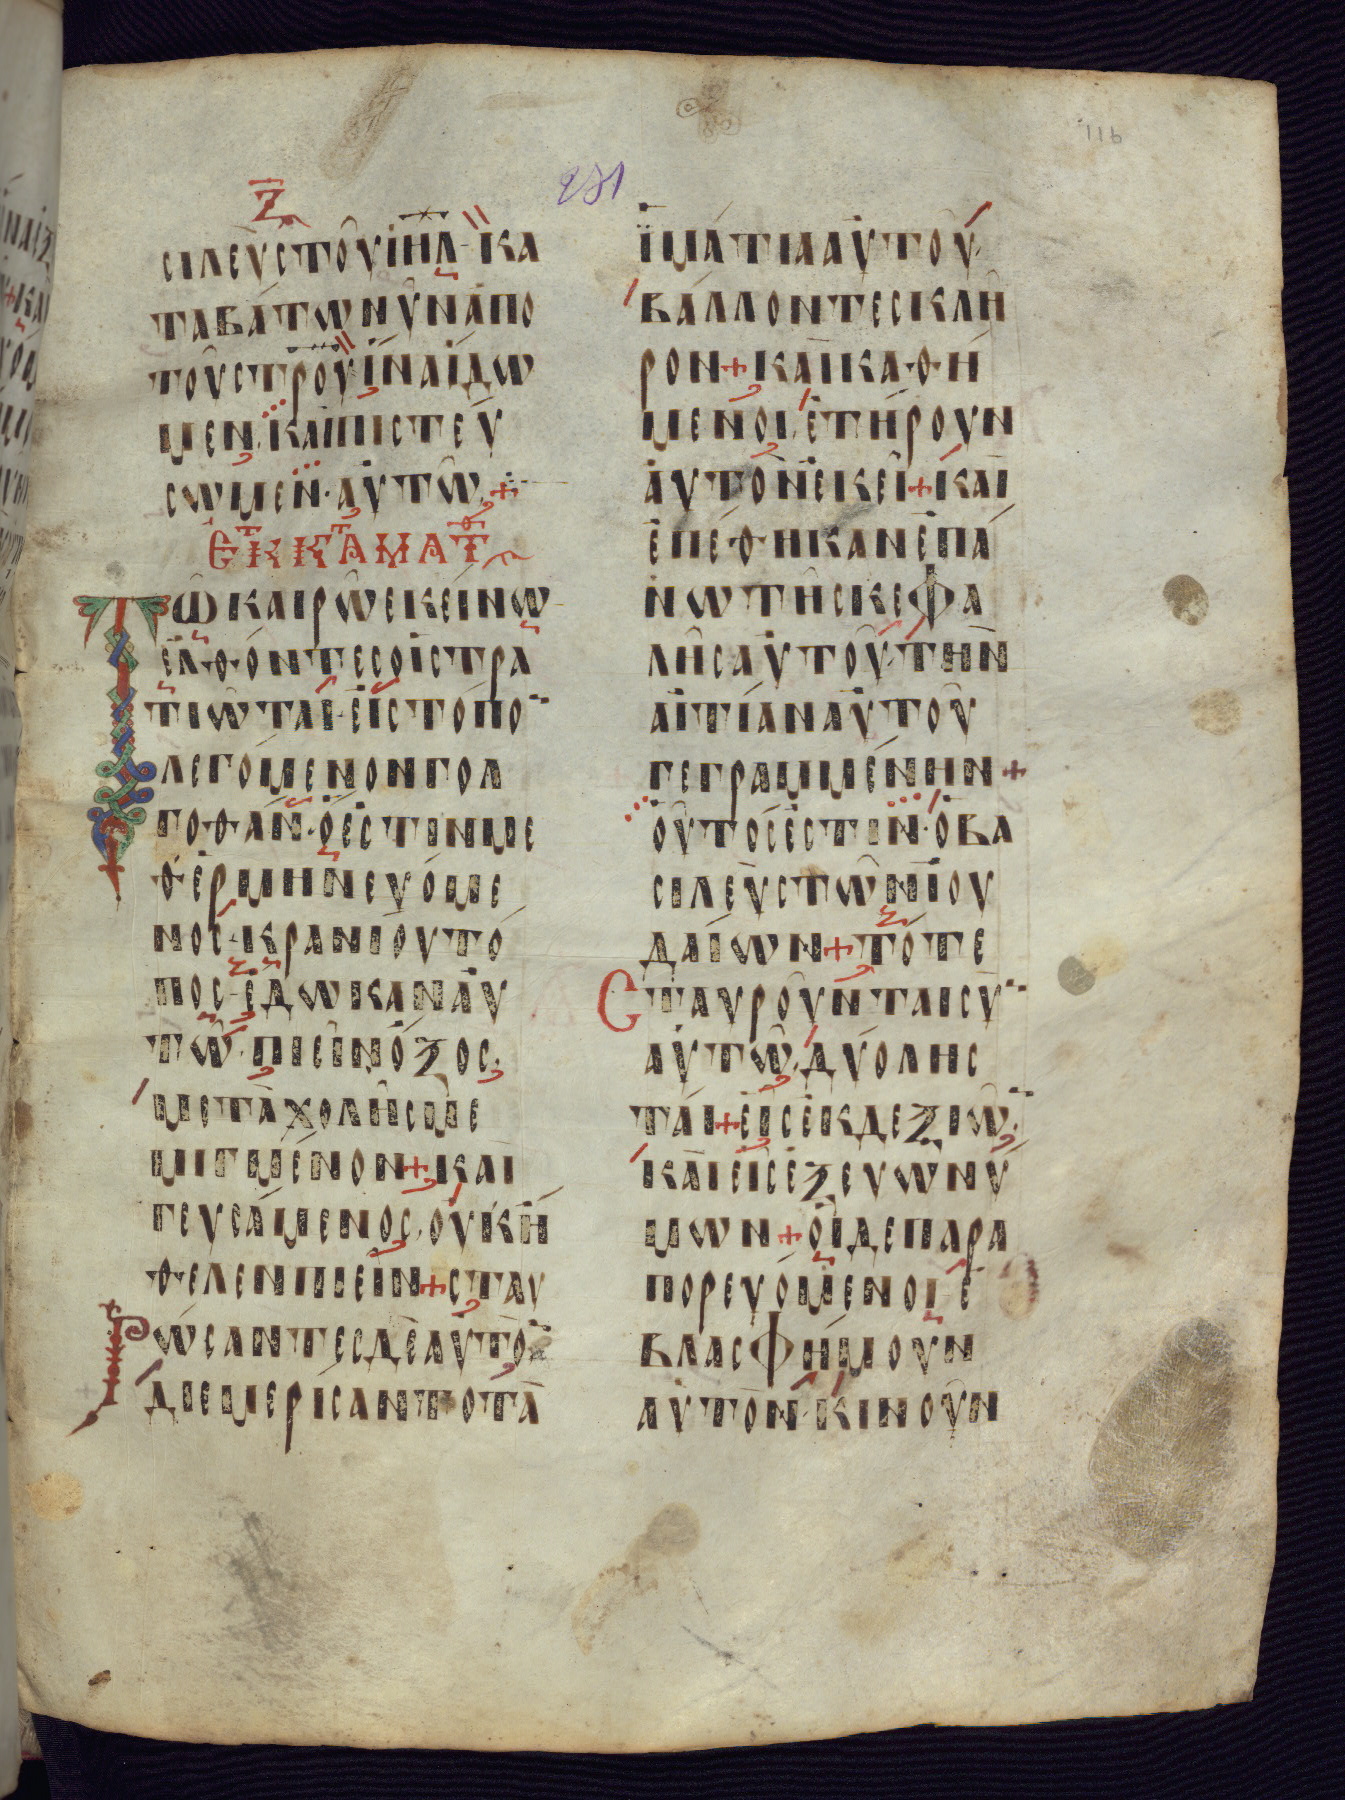 116
231
Ζ
σιλεὺς τοῦ ἰη̅λ· κα
ταβάτω νῦν ἀπὸ
τοῦ στ̅ρου ἵνα ἴδω
μεν, καὶ πιστεύ
σωμεν· αὐτῶ +
ЄΚ Κ̅Τ̅Α ΜΑΤ̅Θ
Τῶ καιρῶ ἐκείνω
ἐλθόντες οἱ στρα
τιῶται· εἰς τόπο̅
λεγόμενον γολ
γοθάν· ὅ ἐστιν με
θερμηνευόμε
νος· κρανίου τό
πος· ἔδωκαν αὐ
τῶ· πιεῖν ὄζος,
μετὰ χολῆς με
μιγμένον + καὶ
γευσάμενος, οὐκ ἤ
θελεν πιεῖν + σταυ
ρώσαντες δὲ αὐτὸ̅
διεμερίσαντο τὰ
ἱμάτια αὐτοῦ·
βάλλοντες κλῆ
ρον + καὶ καθή
μενοι, ἐτήρουν
αὐτὸν ἐκεῖ + καὶ
ἐπέθηκαν ἐπά
νω τῆς κεφα
λῆς αὐτοῦ· τὴν
αἰτίαν αὐτοῦ
γεγραμμένην +
οὗτός ἐστιν· ὁ βα
σιλεὺς τῶν ἰου
δαίων + τότε
σταυροῦνται σὺ̅
αὐτῶ, δύο λησ
ταί + εἷς ἐκ δεζιῶ̅,
καὶ εἷς ἐζ εὐωνύ
μων + οἱ δὲ παρα
πορευόμενοι· ἐ
βλασφήμουν
αὐτὸν· κινοῦν